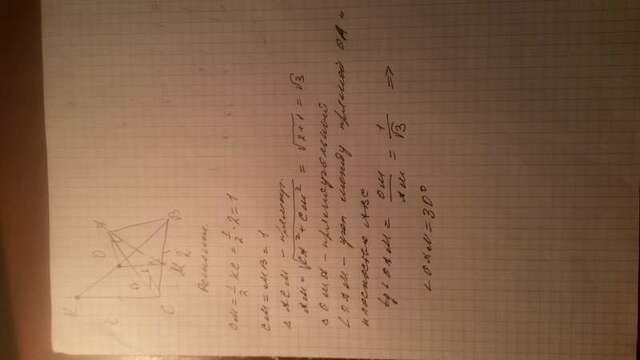 K
O
A
B
C
M
2
Решение.
OM = 1/2 KC = 1/2 · 2 = 1
CM = MB = 1
△ ACM – прямоуг.
AM = √CA² + CM² = √2+1 = √3
△ OMA – прямоугольный
∠OAM – угол между прямой OA и
плоскостью ABC
tg∠OAM = OM/AM = 1/√3 ⇒
∠OAM = 30°